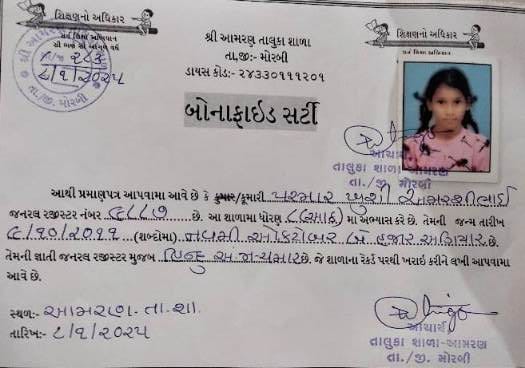 શિક્ષણનો અધિકાર
સર્વ શિક્ષા અભિયાન
સૌ ભણે સૌ આગળ વધે
શ્રી આમરણ તાલુકા શાળા
તા.જી:- મોરબી
ડાયસ કોડ:- ૨૪૩૩૦૧૧૧૨૦૧
શિક્ષણનો અધિકાર
સર્વ શિક્ષા અભિયાન
૮/૧/૨૦૨૫
તા./જી. મોરબી
બોનાફાઇડ સર્ટી
આચાર્ય
તાલુકા શાળા-આમરણ
તા./જી મોરબી
આથી પ્રમાણપત્ર આપવામા આવે છે કે કુમાર/કુમારી પરમાર ખુશી અમરશીભાઈ
જનરલ રજીસ્ટર નંબર ૯૮૮૭ છે. આ શાળામા ધોરણ ૮(આઠ) માં અભ્યાસ કરે છે. તેમની જન્મ તારીખ
૯/૧૦/૨૦૧૧ (શબ્દોમા) નવમી ઓક્ટોબર બે હજાર અગિયાર છે.
તેમની જ્ઞાતી જનરલ રજીસ્ટર મુજબ હિન્દુ અ.જા. ચમાર છે. જે શાળાના રેકર્ડ પરથી ખરાઇ કરીને લખી આપવામા
આવે છે.
સ્થળ:- આમરણ તા. શા.
તારિખ:- ૮/૧/૨૦૨૫
આચાર્ય
તાલુકા શાળા-આમરણ
તા./જી. મોરબી